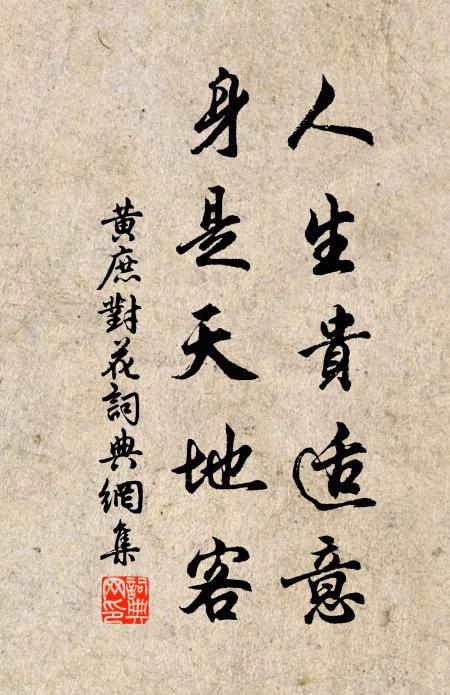 人生貴适意
身是天地客
黃庶對花詞典網集
詞典